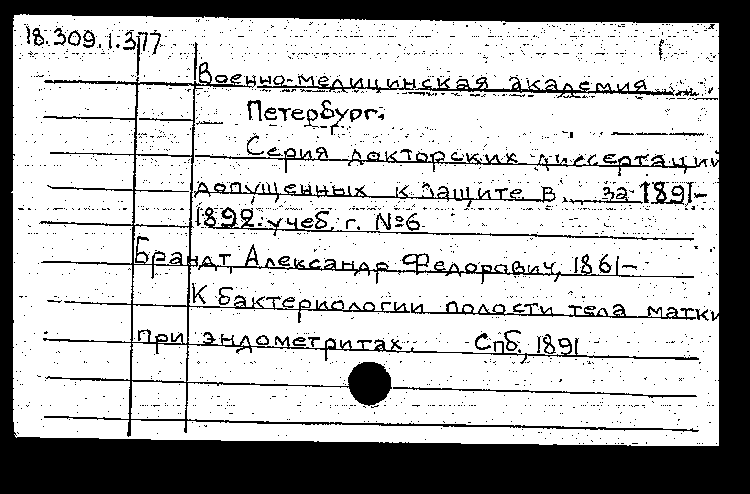 18.309.1.377
Военно-медицинская академия
Петербург.
Серия докторских диссертаций
допущенных к защите в. за 1891-
1892 учеб. г. №6
Брандт, Александр Федорович, 1861-
К бактериологии полости тела матки
при эндометритах. Спб., 1891